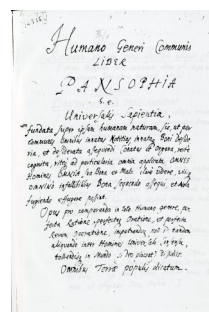 Humano Generi Communis
LIBER
PANSOPHIA
s. e.
Universalis Sapientia,
Fundata super ipsam humanam naturam, sic, ut per
communes Omnibus innatas Notitias, innatos Boni desideria
ria, et desiderata assequendi Conatus et Organa, probe
cognita, ritèq; ad particularia omnia applicata OMNES
Homines OMNIA, sua Bona et Mala clare videre, illaq;
omnino infallibiliter Bona, sperando assequi, et Mala
fugiendo effugere possint.
Opus pro comparanda in toto Humano genere, per
Ratione, perfectaq; Oratione, et perfecta
Rerum Operatione, impetrandaq; sic tandem
aliquando inter Homines Universali,
tollendisq; in Mundo (si Deo placet) Dissidiis.
Omnibus Terræ populis dicatum.